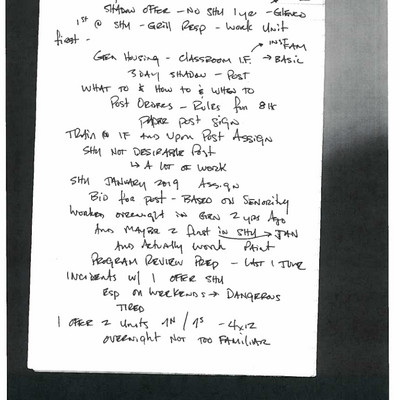 SHADOW OFFER - NO SHU 1 yr -
1st @ SHU - Grill Resp - Work Unit
first -
INST FAM
GEN HOUSING - CLASSROOM I.F. → BASIC
3 DAY SHADOW - POST
WHAT TO & HOW TO & WHEN TO
POST ORDERS - Rules for 8 H
PAPER post sign
TRAIN @ IF AND UPON POST ASSIGN
SHU NOT DESIRABLE Post
↳ A LOT OF WORK
SHU JANUARY 2019 Assign
BID for post - BASED ON SENORITY
WORKED overnight in GEN 2 yrs Ago
AND MAYBE 2 first in SHU → JAN
AND Actually work
PROGRAM REVIEW PREP - LAST 1 TUNE
INCIDENTS w/ 1 OFFER SHU
RSP ON WEEKENDS → DANGEROUS
TIRED
1 OFFER 2 UNITS 1N / 1S - 4x12
OVERNIGHT NOT TOO FAMILIAR